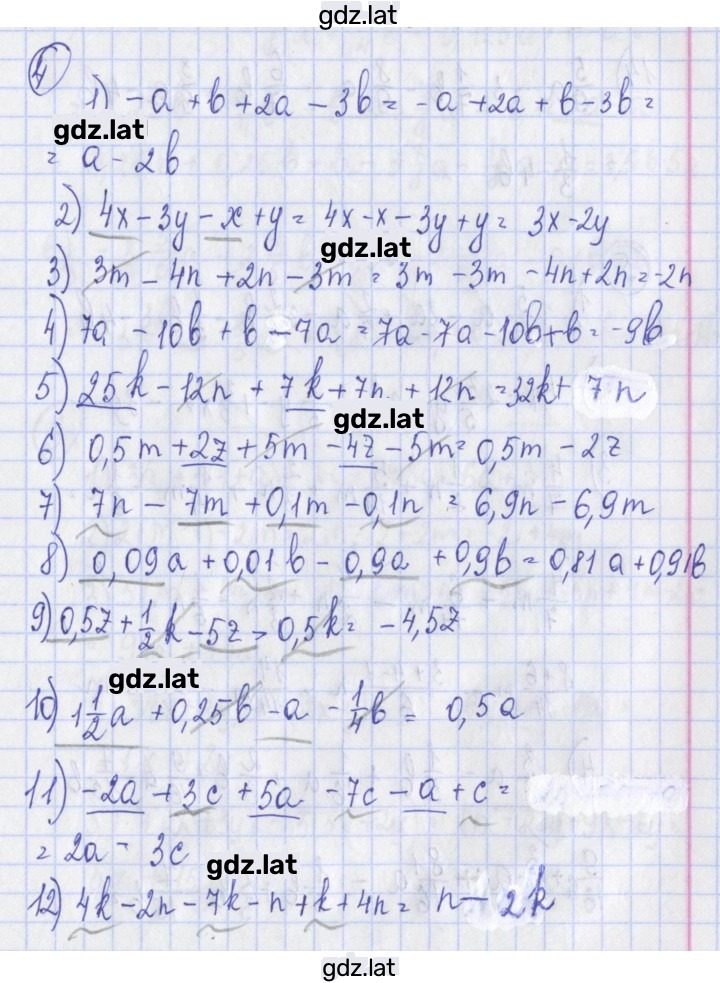 gdz.lat
4
1) -a + b + 2a - 3b = -a + 2a + b - 3b =
gdz.lat
= a - 2b
2) 4x - 3y - x + y = 4x - x - 3y + y = 3x - 2y
gdz.lat
3) 3m - 4n + 2n - 3m = 3m - 3m - 4n + 2n = -2n
4) 7a - 10b + b - 7a = 7a - 7a - 10b + b = -9b
5) 25k - 12n + 7k + 7n + 12n = 32k + 7n
gdz.lat
6) 0,5m + 2z + 5m - 4z - 5m = 0,5m - 2z
7) 7n - 7m + 0,1m - 0,1n = 6,9n - 6,9m
8) 0,09a + 0,01b - 0,9a + 0,9b = 0,81a + 0,91b
9) 0,5z + 1/2k - 5z - 0,5k = -4,5z
gdz.lat
10) 1 1/2a + 0,25b - a - 1/4b = 0,5a
11) -2a + 3c + 5a - 7c - a + c =
= 2a - 3c
gdz.lat
12) 4k - 2n - 7k - n + k + 4n = n - 2k
gdz.lat